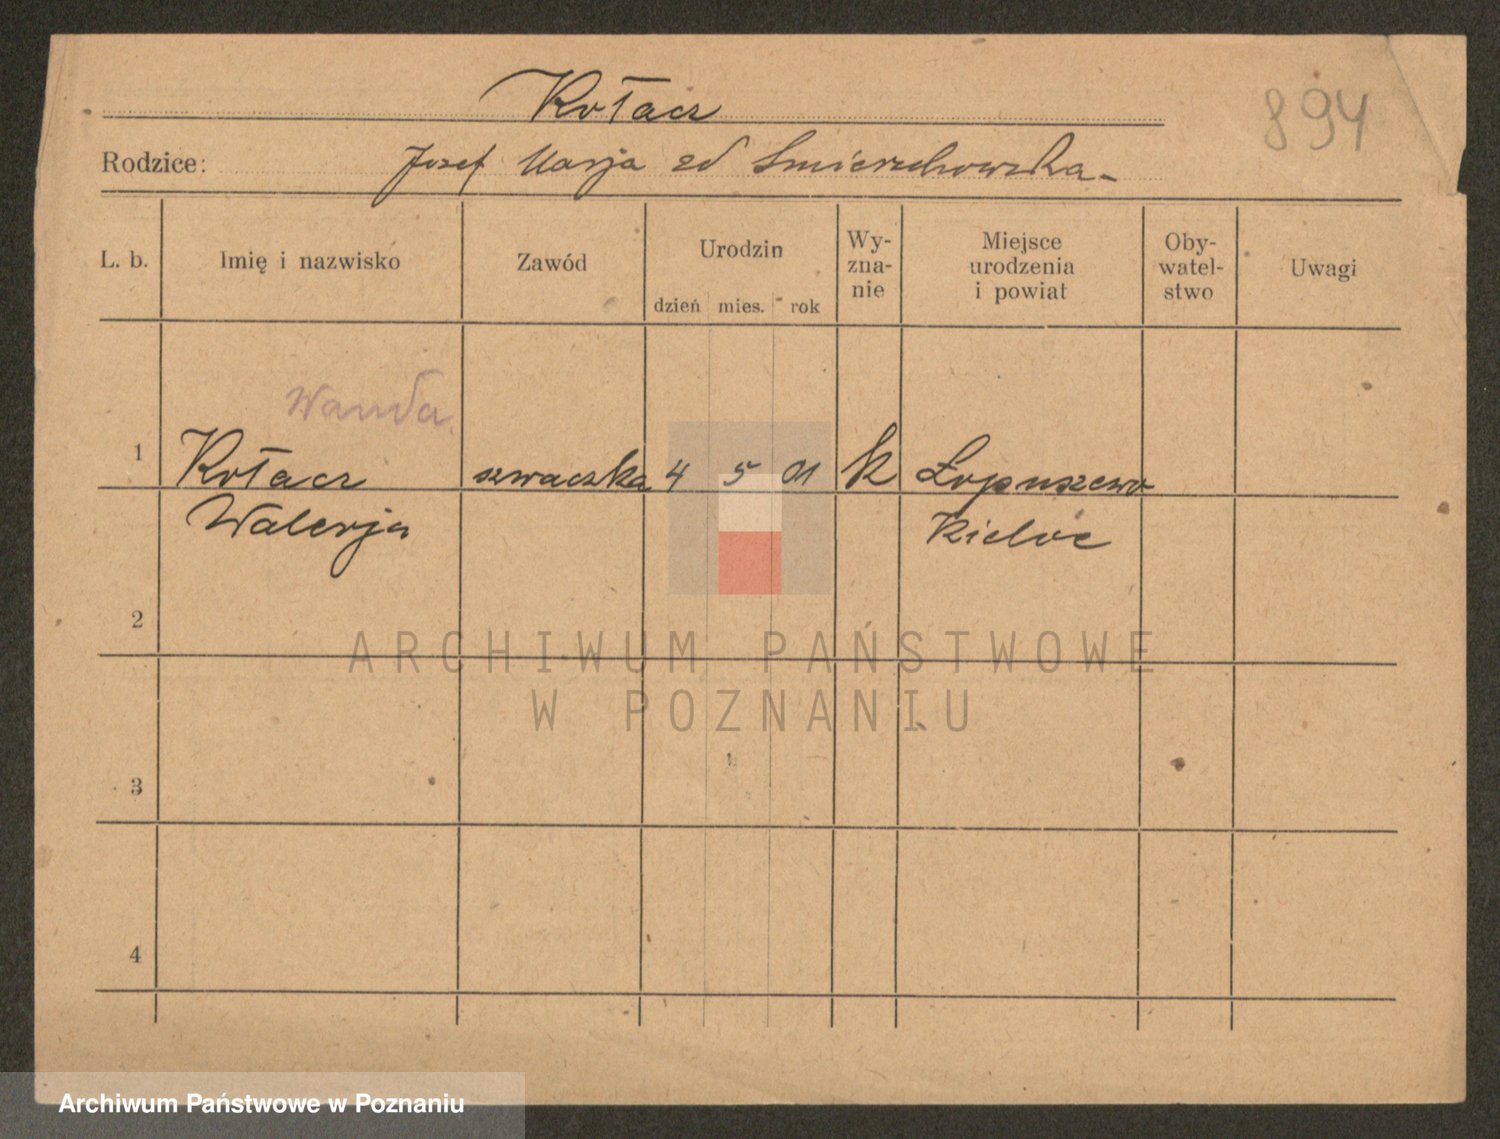 Kołacz
894
Rodzice: Josef Marja zd Smierzchowska-
L. b. Imię i nazwisko Zawód Urodzin dzień mies. rok Wy-zna-nie Miejsce urodzenia i powiat Oby-watel-stwo Uwagi
Wanda
1 Kołacz szwaczka 4 5 01 k Łopuszewo
Walerja Kielce
2
ARCHIWUM PAŃSTWOWE
W POZNANIU
3
4
Archiwum Państwowe w Poznaniu